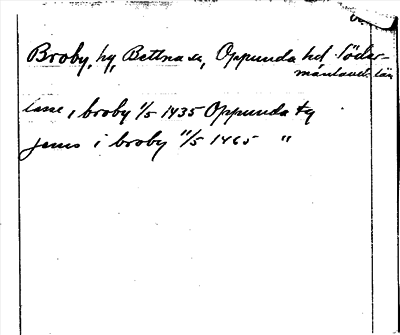 Broby, by, Bettna sn, Oppunda hd. Söder-
manland. län
lasse i broby 1/5 1435 Oppunda ty
jenus i broby 11/5 1465 "